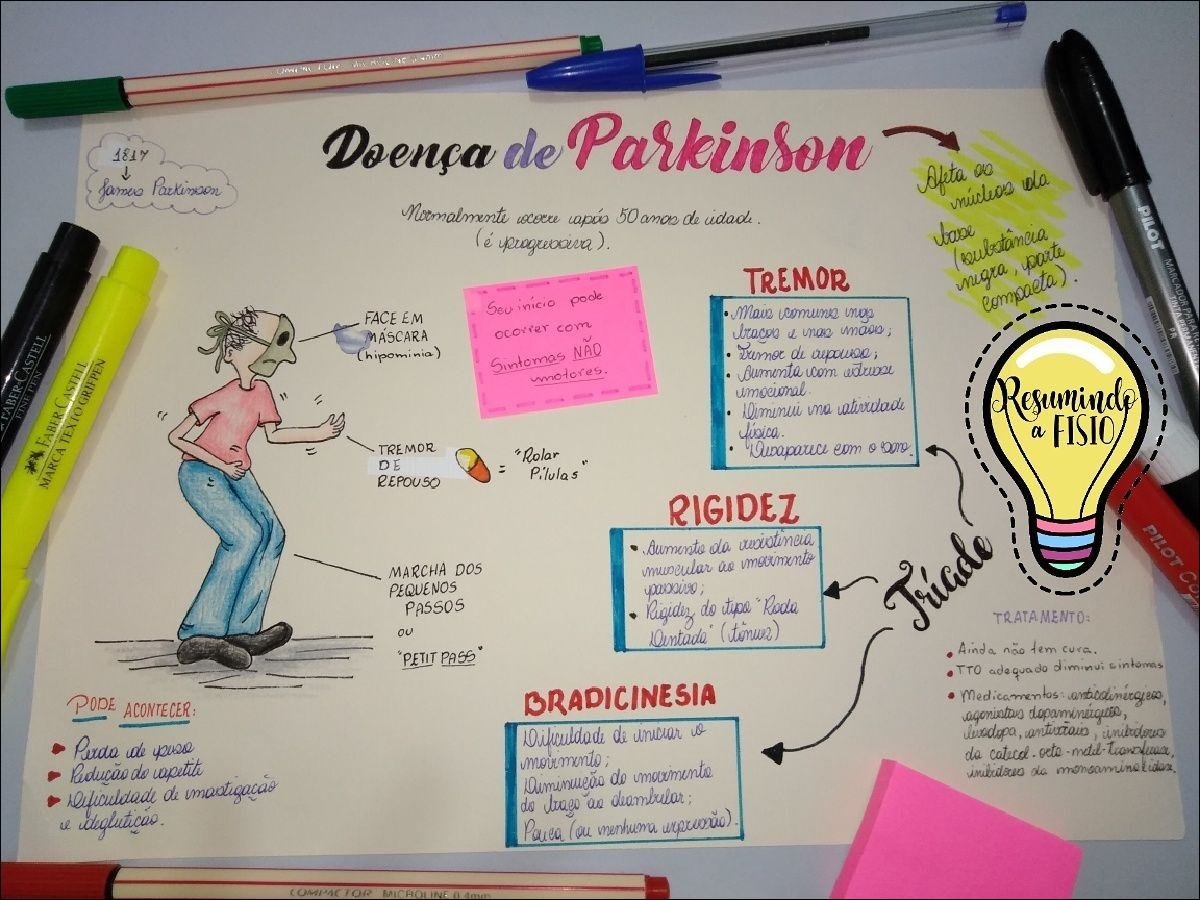 COMPACTOR MICROLINE 0.4mm
1817
James Parkinson
Doença de Parkinson
Normalmente ocorre após 50 anos de idade.
(é progressiva).
Afeta os
núcleos da
base
(substância
negra, parte
compacta).
PILOT
MARCADOR PERMANENTE
FABER-CASTELL
FINE PEN
FABER-CASTELL
MARCA TEXTO GRIFPEN
FACE EM
MÁSCARA
(hipomimia)
Seu início pode
ocorrer com
Sintomas NÃO
motores.
TREMOR
DE
REPOUSO
= "Rolar
Pílulas"
MARCHA DOS
PEQUENOS
PASSOS
OU
"PETIT PASS"
TREMOR
• Mais comuns nos
braços e nas mãos;
• Tremor de repouso;
• Aumenta com estresse
emocional.
• Diminui na atividade
física.
• Desaparece com o sono.
RIGIDEZ
• Aumento da resistência
muscular ao movimento
passivo;
• Rigidez do tipo "Roda
Dentada" (tônus)
BRADICINESIA
Dificuldade de iniciar o
movimento;
Diminuição do movimento
do braço ao deambular;
Pouca (ou nenhuma expressão).
Tríade
Resumindo
a FISIO
PILOT
TRATAMENTO:
• Ainda não tem cura.
• TTO adequado diminui sintomas
• Medicamentos: anticolinérgicos,
agonistas dopaminérgicos,
levodopa, antivirais, inibidores
da catecol-orto-metil-transferase,
inibidores da monoamina oxidase.
PODE ACONTECER:
Perda de peso
Redução do apetite
Dificuldade de mastigação
e deglutição.
COMPACTOR MICROLINE 0.4mm